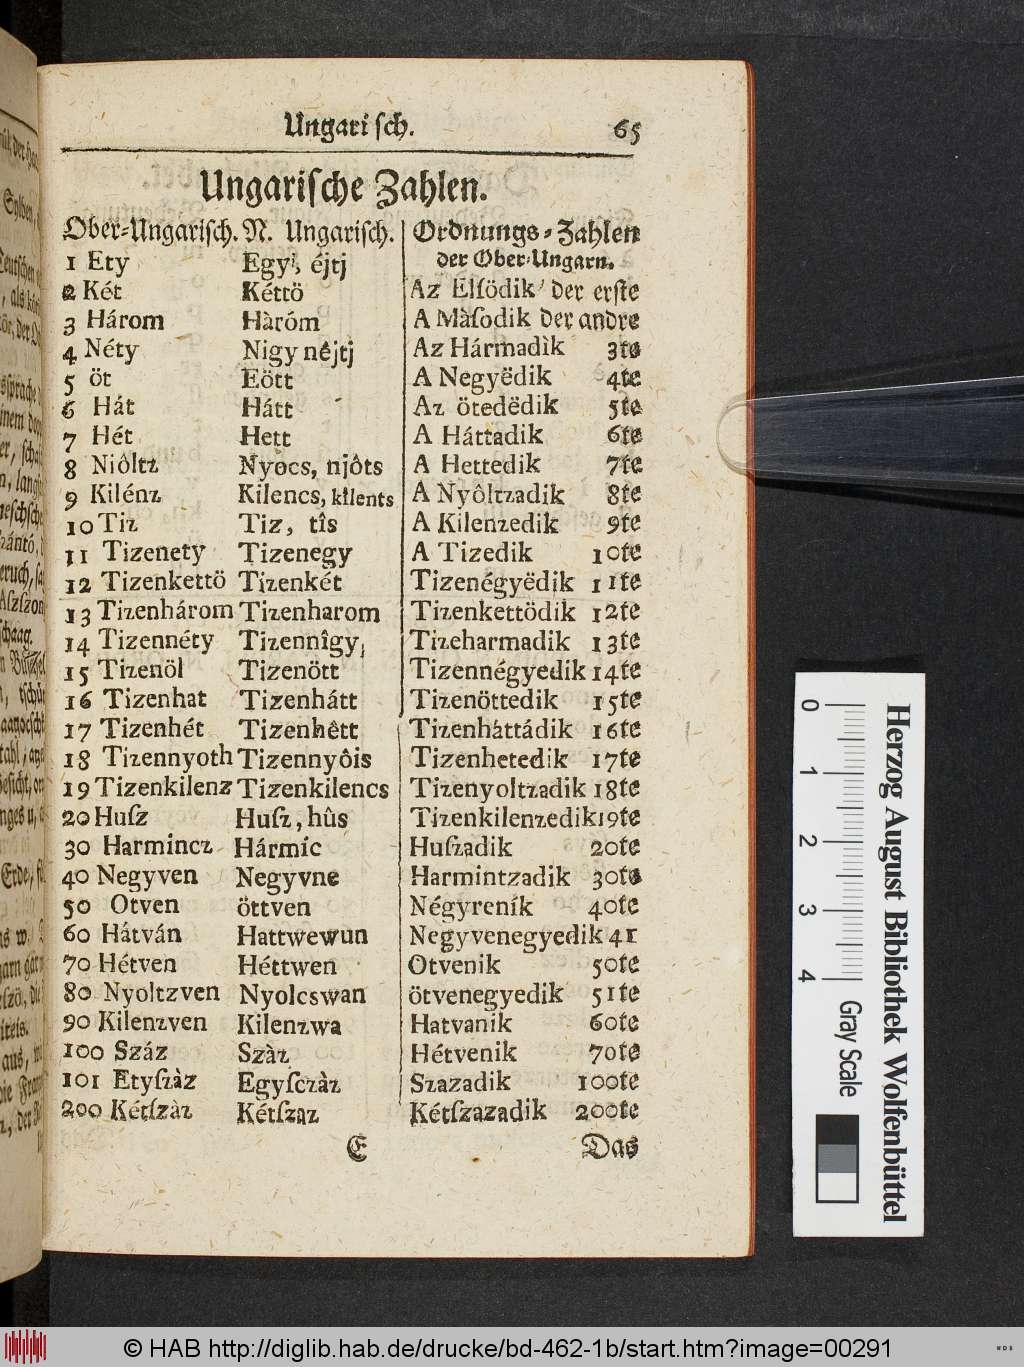 Ungariſch. 65
Ungariſche Zahlen.
Ober-Ungariſch. N. Ungariſch. Ordnungs-Zahlen
der Ober-Ungarn.
1 Ety Egyi, éjtj
2 Két Kéttö Az Elſödik der erſte
3 Három Hàróm A Màſodik der andre
4 Néty Nigy nêjtj Az Hármadìk 3te
5 öt Eött A Negyëdik 4te
6 Hát Hátt Az ötedëdik 5te
7 Hét Hett A Háttadik 6te
8 Niôltz Nyocs, njôts A Hettedik 7te
9 Kilénz Kilencs, kîlents A Nyôltzadik 8te
10 Tiz Tiz, tîs A Kilenzedik 9te
11 Tizenety Tizenegy A Tizedik 10te
12 Tizenkettö Tizenkét Tizenégyëdik 11te
13 Tizenhárom Tizenharom Tizenkettödik 12te
14 Tizennéty Tizennîgy, Tizeharmadik 13te
15 Tizenöl Tizenött Tizennégyedik 14te
16 Tizenhat Tizenhátt Tizenöttedik 15te
17 Tizenhét Tizenhêtt Tizenháttádik 16te
18 Tizennyoth Tizennyôis Tizenhetedik 17te
19 Tizenkilenz Tizenkilencs Tizenyoltzadik 18te
20 Huſz Huſz, hûs Tizenkilenzedik 19te
30 Harmincz Hármic Huſzadik 20te
40 Negyven Negyvne Harmintzadik 30te
50 Otven öttven Négyreník 40te
60 Hátván Hattwewun Negyvenegyedik 41
70 Hétven Héttwen Otvenik 50te
80 Nyoltzven Nyolcswan ötvenegyedik 51te
90 Kilenzven Kilenzwa Hatvanik 60te
100 Száz Szàz Hétvenik 70te
101 Etyſzàz Egyſczàz Szazadik 100te
200 Kétſzàz Kétſzaz Kétſzazadik 200te
E Das
0 1 2 3 4
Gray Scale
Herzog August Bibliothek Wolfenbüttel
© HAB http://diglib.hab.de/drucke/bd-462-1b/start.htm?image=00291